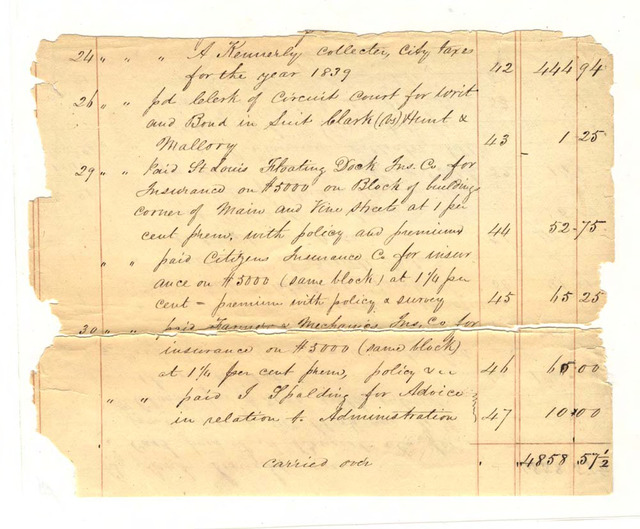 24 " " A Kennerly collecter, City taxes
for the year 1839 42 444 94
26 " " pd Clerk of Circuit Court for writ
and Bond in Suit Clark (vs) Hunt &
Mallory 43 - 1 25
29 " " Paid St Louis Floating Dock Ins. Co for
Insurance on $5000 on Block of buildings
corner of Main and Vine streets at 1 per
cent prem. with policy and premiums 44 52.75
" " paid Citizens Insurance Co for insur
ance on $5000 (same block) at 1 1/4 per
cent - premium with policy & survey 45 65 25
30 " " paid Farmers & Mechanics Ins. Co for
insurance on $5000 (same block)
at 1 1/4 per cent prem, policy &c 46 65 00
" " paid J Spalding for Advice
in relation to Administration 47 10 00
carried over . . 4858.57 1/2